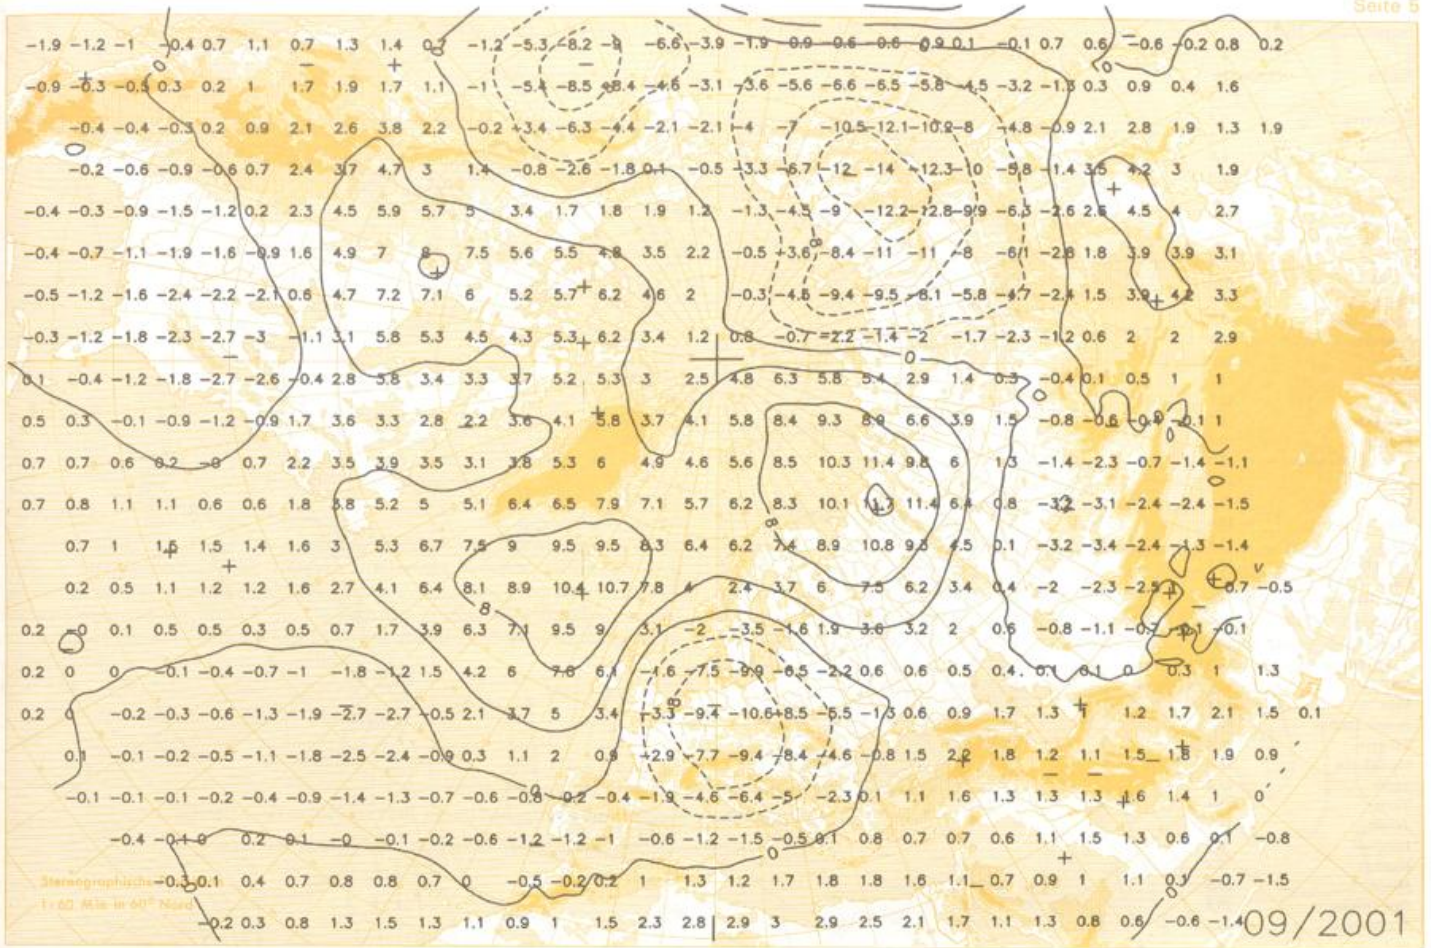 Seite 5
-1.9 -1.2 -1 -0.4 0.7 1.1 0.7 1.3 1.4 0.7 -1.2 -5.3 -8.2 -9 -6.6 -3.9 -1.9 -0.9 -0.6 -0.6 -0.9 0.1 -0.1 0.7 0.6 -0.6 -0.2 0.8 0.2
-0.9 -0.3 -0.5 0.3 0.2 1 1.7 1.9 1.7 1.1 -1 -5.4 -8.5 -8.4 -4.6 -3.1 -3.6 -5.6 -6.6 -6.5 -5.8 -4.5 -3.2 -1.3 0.3 0.9 0.4 1.6
-0.4 -0.4 -0.3 0.2 0.9 2.1 2.6 3.8 2.2 -0.2 -3.4 -6.3 -4.4 -2.1 -2.1 -4 -7 -10.5 -12.1 -10.9 -8 -4.8 -0.9 2.1 2.8 1.9 1.3 1.9
-0.2 -0.6 -0.9 -0.6 0.7 2.4 3.7 4.7 3 1.4 -0.8 -2.6 -1.8 0.1 -0.5 -3.3 -6.7 -12 -14 -12.3 -10 -5.8 -1.4 3.5 4.2 3 1.9
-0.4 -0.3 -0.9 -1.5 -1.2 0.2 2.3 4.5 5.9 5.7 5 3.4 1.7 1.8 1.9 1.2 -1.3 -4.5 -9 -12.2 -12.8 -9.9 -6.3 -2.6 2.6 4.5 4 2.7
-0.4 -0.7 -1.1 -1.9 -1.6 -0.9 1.6 4.9 7 8 7.5 5.6 5.5 4.8 3.5 2.2 -0.5 -3.6 -8.4 -11 -11 -8 -6.1 -2.8 1.8 3.9 3.9 3.1
8
-0.5 -1.2 -1.6 -2.4 -2.2 -2.1 0.6 4.7 7.2 7.1 6 5.2 5.7 6.2 4.6 2 -0.3 -4.6 -9.4 -9.5 -8.1 -5.8 -4.7 -2.4 1.5 3.9 4.2 3.3
-0.3 -1.2 -1.8 -2.3 -2.7 -3 -1.1 3.1 5.8 5.3 4.5 4.3 5.3 6.2 3.4 1.2 0.8 -0.7 -2.2 -1.4 -2 -1.7 -2.3 -1.2 0.6 2 2 2.9
0
0.1 -0.4 -1.2 -1.8 -2.7 -2.6 -0.4 2.8 5.8 3.4 3.3 3.7 5.2 5.3 3 2.5 4.8 6.3 5.8 5.4 2.9 1.4 0.3 -0.4 0.1 0.5 1 1
0.5 0.3 -0.1 -0.9 -1.2 -0.9 1.7 3.6 3.3 2.8 2.2 3.6 4.1 5.8 3.7 4.1 5.8 8.4 9.3 8.9 6.6 3.9 1.5 -0.8 -0.6 -0.4 -0.1 1
0.7 0.7 0.6 0.2 -0 0.7 2.2 3.5 3.9 3.5 3.1 3.8 5.3 6 4.9 4.6 5.6 8.5 10.3 11.4 9.8 6 1.3 -1.4 -2.3 -0.7 -1.4 -1.1
0.7 0.8 1.1 1.1 0.6 0.6 1.8 3.8 5.2 5 5.1 6.4 6.5 7.9 7.1 5.7 6.2 8.3 10.1 11.7 11.4 6.4 0.8 -3.2 -3.1 -2.4 -2.4 -1.5
8
0.7 1 1.5 1.5 1.4 1.6 3 5.3 6.7 7.5 9 9.5 9.5 8.3 6.4 6.2 7.4 8.9 10.8 9.3 4.5 0.1 -3.2 -3.4 -2.4 -1.3 -1.4
0.2 0.5 1.1 1.2 1.2 1.6 2.7 4.1 6.4 8.1 8.9 10.4 10.7 7.8 4 2.4 3.7 6 7.5 6.2 3.4 0.4 -2 -2.3 -2.5 0.7 -0.5
8
0.2 -0 0.1 0.5 0.5 0.3 0.5 0.7 1.7 3.9 6.3 7.1 9.5 9 3.1 -2 -3.5 -1.6 1.9 3.6 3.2 2 0.6 -0.8 -1.1 -0.7 -0.1 -0.1
0.2 0 0 -0.1 -0.4 -0.7 -1 -1.8 -1.2 1.5 4.2 6 7.6 6.1 -1.6 -7.5 -9.9 -6.5 -2.2 0.6 0.6 0.5 0.4 0.1 0.1 0 0.3 1 1.3
8
0.2 0 -0.2 -0.3 -0.6 -1.3 -1.9 -2.7 -2.7 -0.5 2.1 3.7 5 3.4 -3.3 -9.4 -10.6 -8.5 -5.5 -1.3 0.6 0.9 1.7 1.3 1 1.2 1.7 2.1 1.5 0.1
0.1 -0.1 -0.2 -0.5 -1.1 -1.8 -2.5 -2.4 -0.9 0.3 1.1 2 0.9 -2.9 -7.7 -9.4 -8.4 -4.6 -0.8 1.5 2.2 1.8 1.2 1.1 1.5 1.8 1.9 0.9
0
-0.1 -0.1 -0.1 -0.2 -0.4 -0.9 -1.4 -1.3 -0.7 -0.6 -0.8 -0.2 -0.4 -1.9 -4.6 -6.4 -5 -2.3 0.1 1.1 1.6 1.3 1.3 1.3 1.6 1.4 1 0
-0.4 -0.1 0 0.2 0.1 -0 -0.1 -0.2 -0.6 -1.2 -1.2 -1 -0.6 -1.2 -1.5 -0.5 0.1 0.8 0.7 0.7 0.6 1.1 1.5 1.3 0.6 0.1 -0.8
0
Stereographische
-0.3 0.1 0.4 0.7 0.8 0.8 0.7 0 -0.5 -0.2 0.2 1 1.3 1.2 1.7 1.8 1.8 1.6 1.1 0.7 0.9 1 1.1 0.1 -0.7 -1.5
1:60 Mio in 60° Nord
-0.2 0.3 0.8 1.3 1.5 1.3 1.1 0.9 1 1.5 2.3 2.8 2.9 3 2.9 2.5 2.1 1.7 1.1 1.3 0.8 0.6 -0.6 -1.4
09/2001